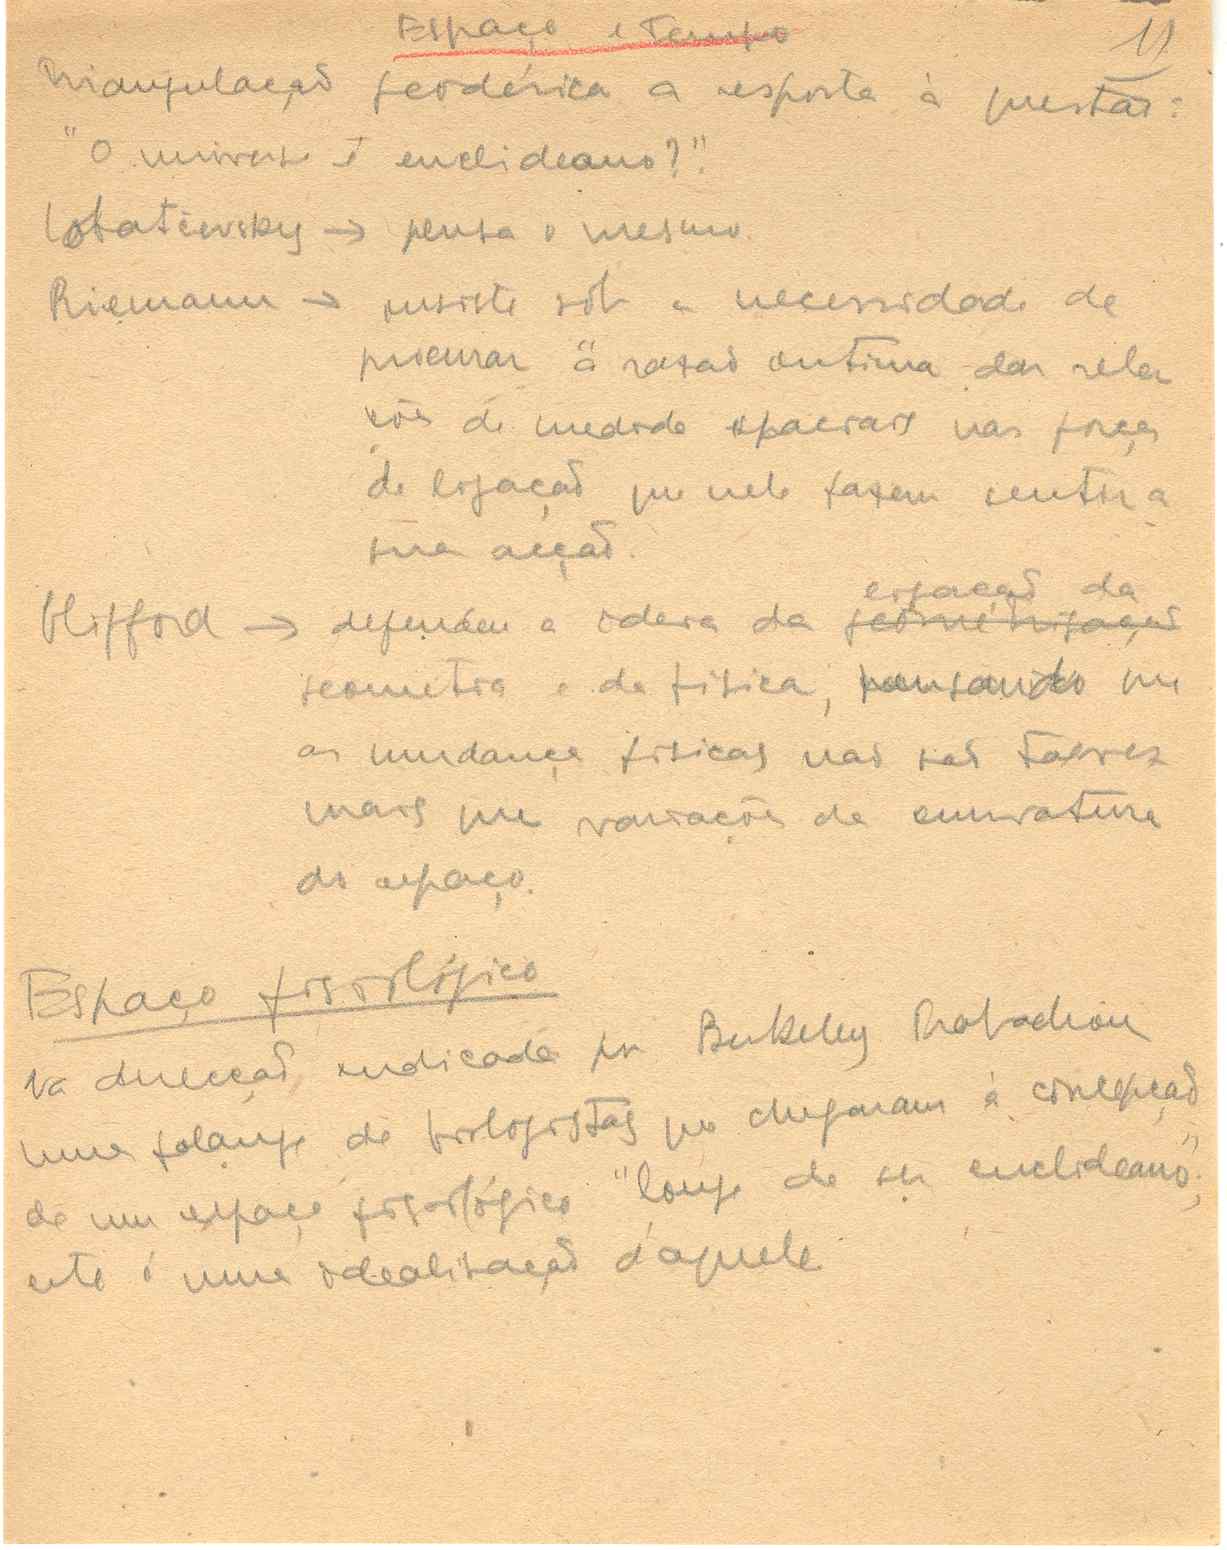 Espaço e Tempo 11
Triangulação geodésica a resposta à questão:
"O universo é euclideano?".
Lobatchevsky → pensa o mesmo.
Riemann → insiste sôb a necessidade de
procurar "a razão intima das rela
ções de medida espaciais nas forças
de ligação que nele fazem sentir a
sua acção.
Clifford → defendeu a ideia da geometrização
ligação da
geometria e da fisica, pensando que
as mudanças fisicas não são talvez
mais que variações da curvatura
do espaço.
Espaço fisiológico
Na direcção indicada por Berkeley trabalhou
uma falange de biologistas que chegaram à concepção
de um espaço fisiológico "longe de ser euclideano";
este é uma idealização daquele